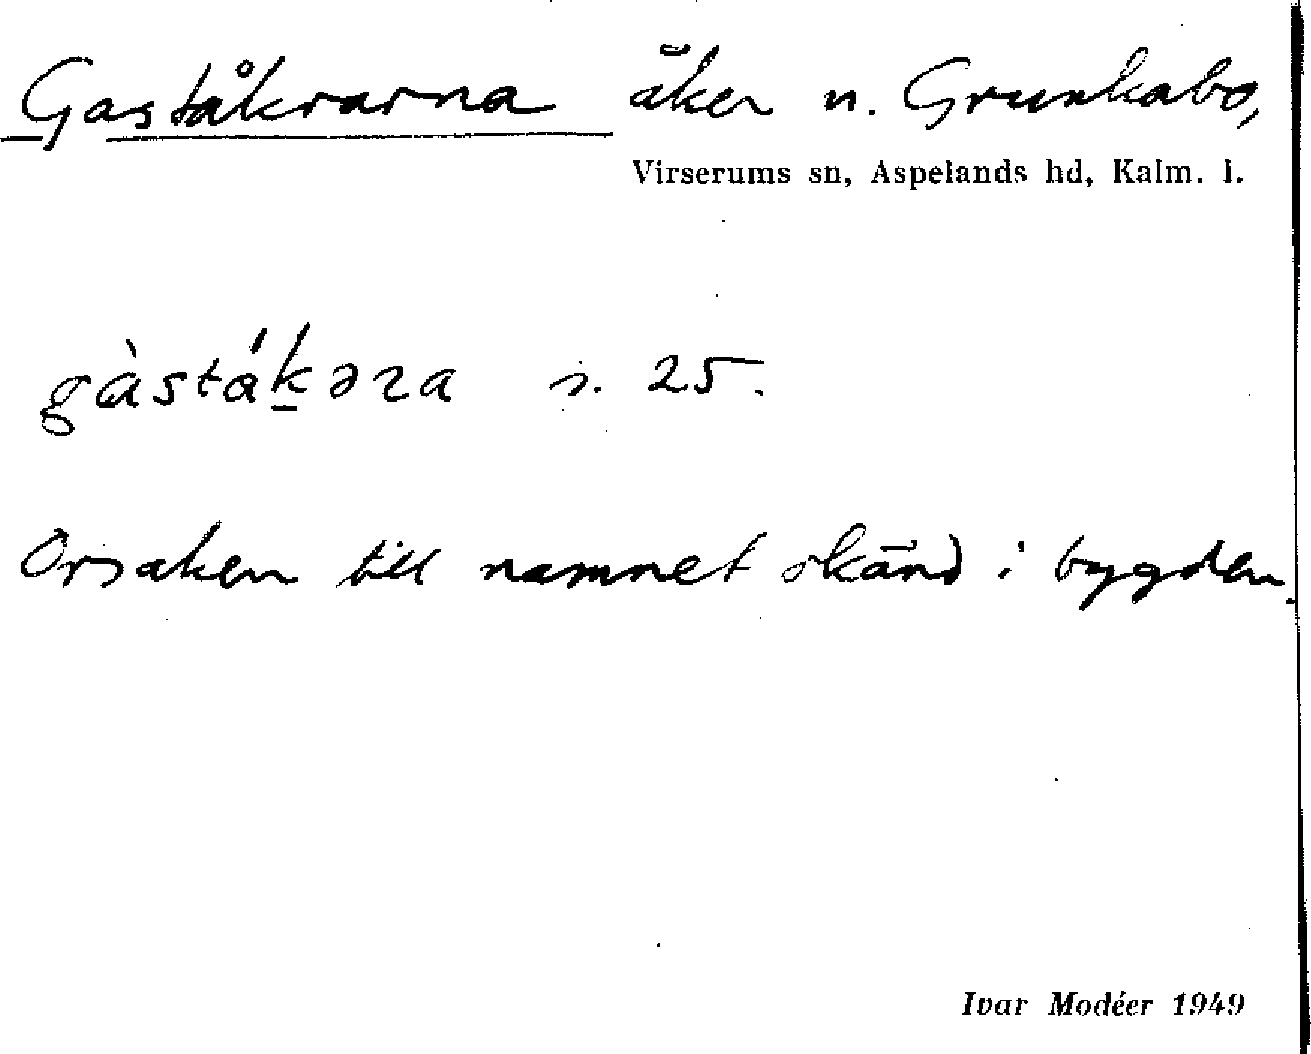 Gaståkrarna åker n. Grunkabo,
Virserums sn, Aspelands hd, Kalm. l.
gàstákəra s. 25.
Orsaken till namnet okänd i bygden.
Ivar Modéer 1949